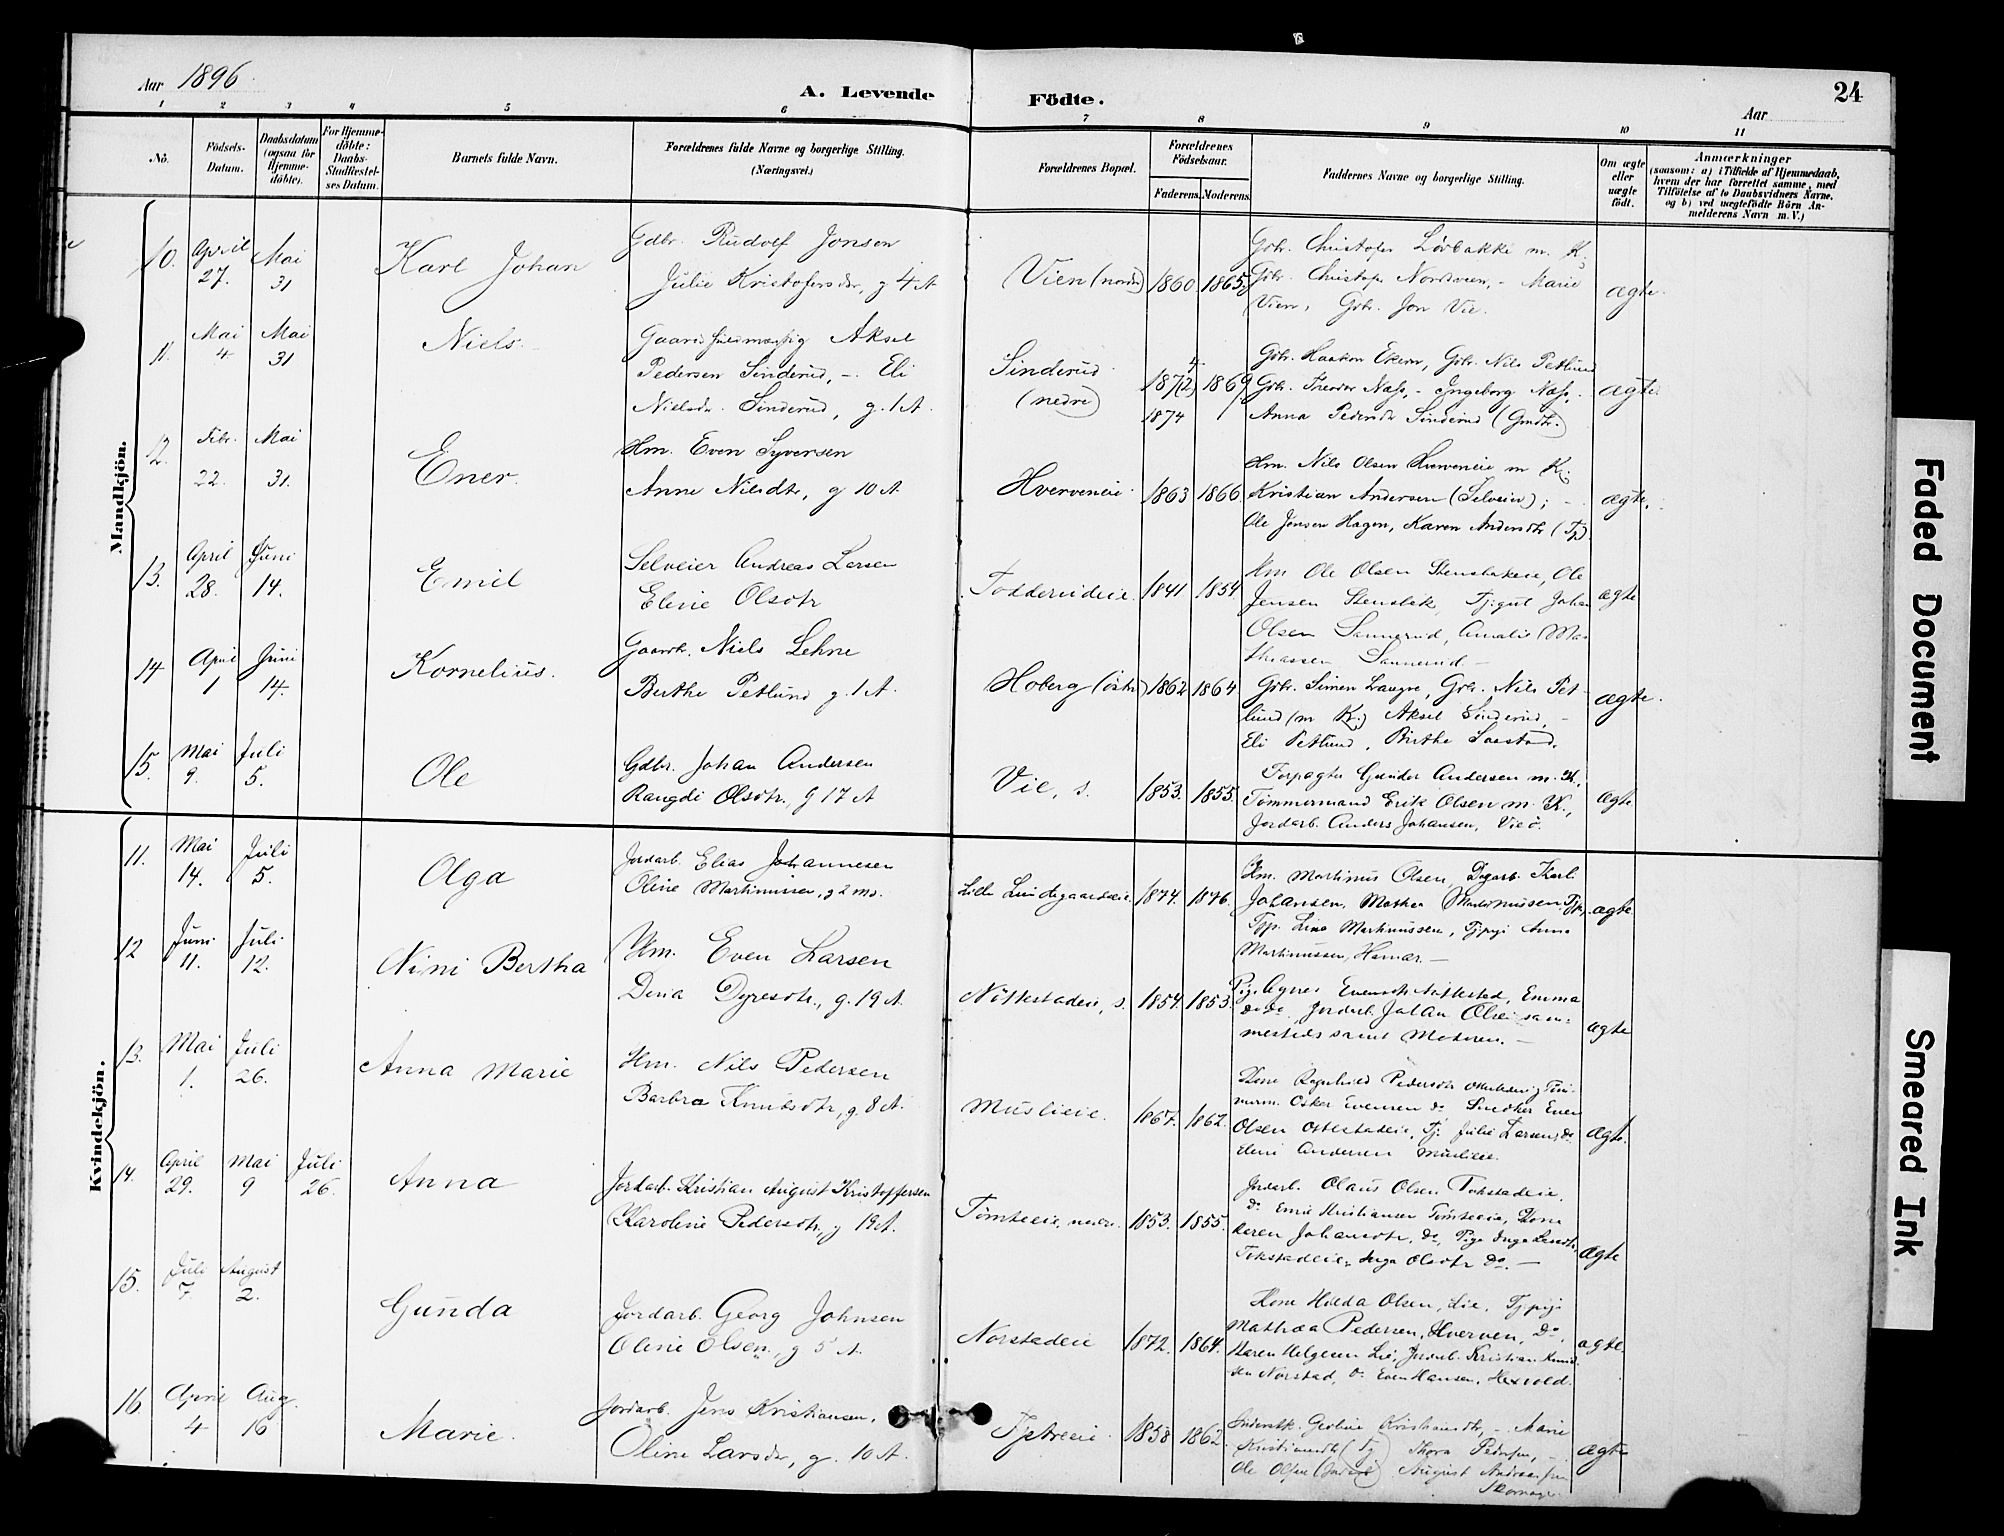 Aar 1896
A. Levende Födte.
24
Aar
1 2 3 4 5 6 7 8 9 10 11
No.
Födsels-Datum.
Daabsdatum (ogsaa for Hjemmedöbte).
For Hjemmedöbte: Daabs-Stadfæstelses Datum.
Barnets fulde Navn.
Forældrenes fulde Navne og borgerlige Stilling. (Næringsvei.)
Forældrenes Bopæl.
Forældrenes Födselsaar.
Faderens. Moderens.
Faddernes Navne og borgerlige Stilling.
Om ægte eller uægte födt.
Anmærkninger (saasom: a) i Tilfælde af Hjemmedaab, hvem der har forrettet samme, med Tilföielse af to Daabsvidners Navne, og b) ved uægtefödte Börn Anmelderens Navn m. V.)
Mandkjön.
10. April 27. Mai 31 Karl Johan
Gdbr. Rudolf Jonsen
Julie Kristofersdr, g 4 A
Vien (nordre) 1860 1865
Gbr. Christofer Lövbakke m. K.
Gbr. Christofer Nordvien, - Marie
Vien, Gbr. Jon Vie.
ægte.
11. Mai 4 Mai 31 Niels
Gaardfuldmægtig Aksel
Pedersen Sinderud, - Eli
Nielsdr. Sinderud, g. 1 A.
Sinderud (nedre) 1874 1869
Gbr. Haakon Ekern, Gbr. Nils Petlund
Gbr. Theodor Næss, - Ingeborg Næss,
Anna Pedersdr Sinderud
ægte.
12. Febr. 22. Mai 31. Ener.
Hm. Even Syversen
Anne Nilsdtr, g 10 A.
Hverveneie 1863 1866
Hm. Nils Olsen Hverveneie m K.
Kristian Andersen (Selveier); -
Ole Jensen Hagen, Karen Andersdtr (Tj)
ægte.
13. April 28. Juni 14. Emil
Selveier Andreas Larsen
Eline Olsdtr
1841 1854
Hm Ole Olsen Stensbakeie, Ole
Jensen Stensbak, Tj.gut Johan
Olsen Sannerud, Amalie Ma-
thiassen Sannerud. -
ægte
14 April 1 Juni 14. Kornelius.
Gaardb. Niels Lehne
Berthe Petlund g. 1 A.
Hoberg (östre) 1862 1864
Gbr. Simen Laugre, Gbr. Nils Pet-
lund (m K.) Aksel Sinderud, -
Eli Petlund, Birthe Saastad.
ægte.
15. Mai 9. Juli 5. Ole
Gdbr. Johan Andersen
Rangdi Olsdtr, g 17 A
Vie, s. 1853. 1855.
Forpagter Gunder Andersen m. K.,
Tømmermand Erik Olsen m. K.,
Jordarb. Anders Johansen, Vie ö.
ægte
Kvindekjön.
11. Mai 14. Juli 5. Olga
Jordarb. Elias Johannesen
Oline Martinussen, g 2 md.
Lille Lundsgaardseie 1874. 1876.
Hm. Martinus Olsen, Dagarb. Karl
Johansen, Mathea Martinussen Tjp.,
Tjp. Lina Martinussen, Tjpige Anna
Martinussen, Hamar. -
ægte
12 Juni 11. Juli 12. Nini Bertha
Hm. Even Larsen
Dina Dyresdtr., g. 19 A.
s. 1854. 1853.
Pige Agnes Evensdtr Emma
do do, Jordarb. Johan Olsen sam-
mesteds samt Moderen. -
ægte
13. Mai 1. Juli 26. Anna Marie
Hm. Nils Pedersen
Barbra Knutsdtr, g. 8 A.
Muslieie. 1867. 1862.
Kone Ragnhild Pedersdtr Tøm-
merm. Oskar Evensen do Snedker Even
Olsen Ottestadeie, Tj. Julie Larsen, do
Elene Andersen Muslieie.
ægte.
14. April 29. Mai 9 Juli 26. Anna
Jordarb. Kristian August Kristoffersen
Karoline Pedersdtr, g 19 A.
Tömteeie, nedre. 1853. 1855.
Jordarb. Olaus Olsen Tokstadeie,
do Emil Kristiansen Tömteeie, Kone
Karen Johansdtr, do, Pige Inga Larsdtr,
Tokstadeie, Inga Olsdtr do. -
ægte
15. Juli 7 August 2. Gunda
Jordarb. Georg Johnsen
Oline Olsen, g 5 A.
Norstadeie 1872. 1864.
Kone Hilda Olsen, Lie, Tjpige
Mathea Pedersen, Hverven, Do.
Karen Helgesen Lie, Jordarb. Kristian Knud-
sen Norstad, Do Even Hansen,
ægte
16 April 4 Aug. 16 Marie.
Jordarb. Jens Kristiansen,
Oline Larsdr, g. 10 A.
1858 1862
Kristiansdtr, - Marie
Kristiansdtr (Tj) Thora Pedersen, -
Ole Olsen (Jordarb) August Andreassen
Skomager
ægte
Faded Document
Smeared Ink